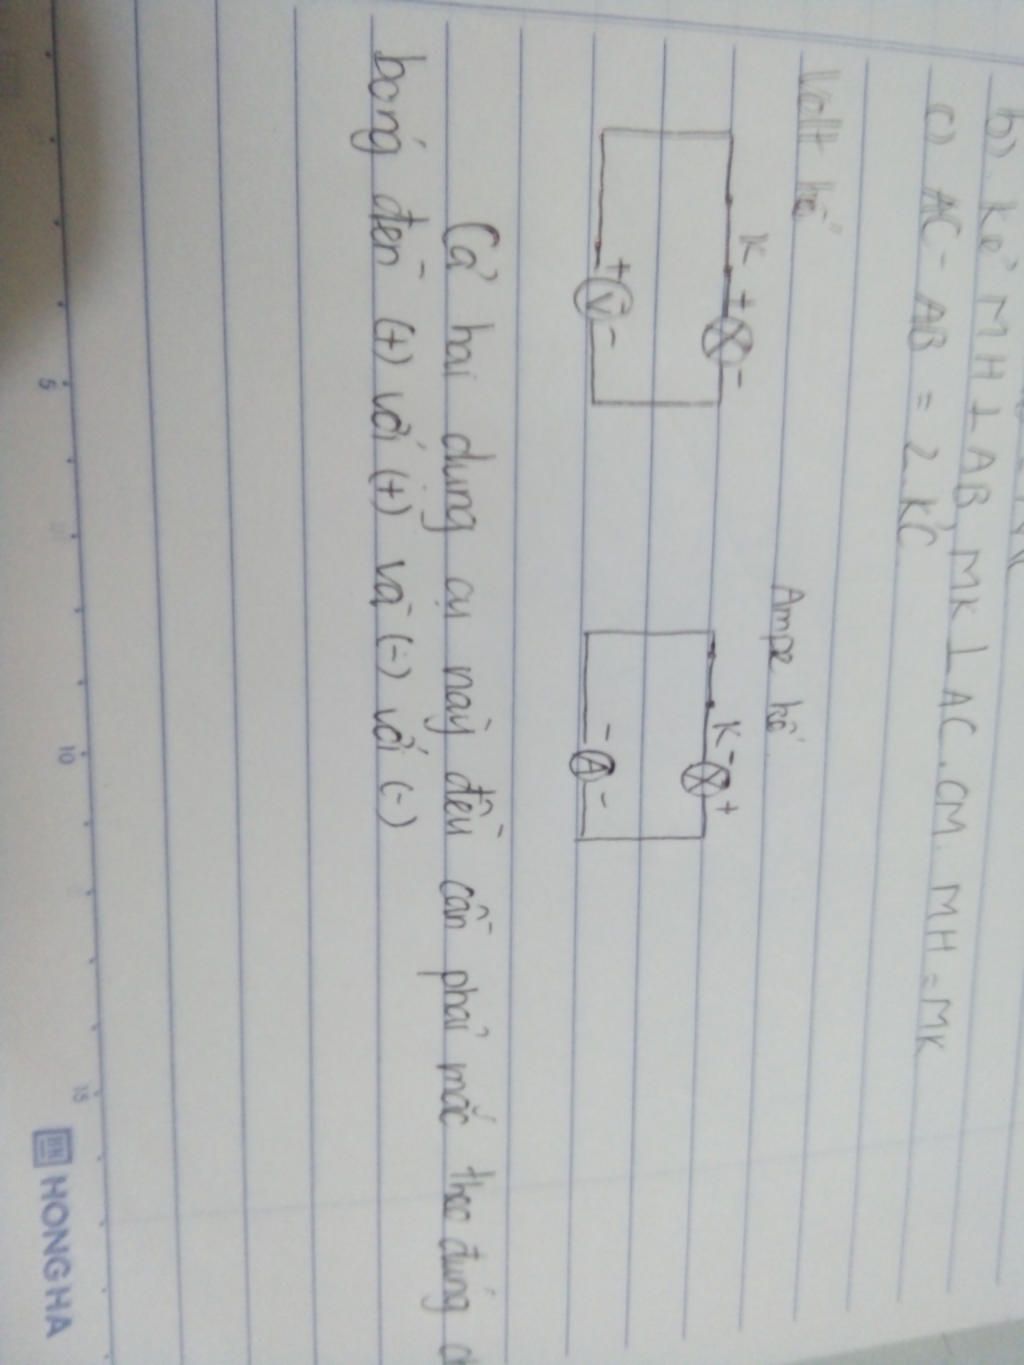 b). Kẻ MH ⊥ AB, MK ⊥ AC. CM. MH = MK
c) AC - AB = 2.KC
Vollt kế
Ampe kế
K + -
K - +
+ V -
- A -
Cả hai dụng cụ này đều cần phải mắc theo đúng
bóng đèn (+) với (+) và (-) với (-)
5 10 15
HONG HA